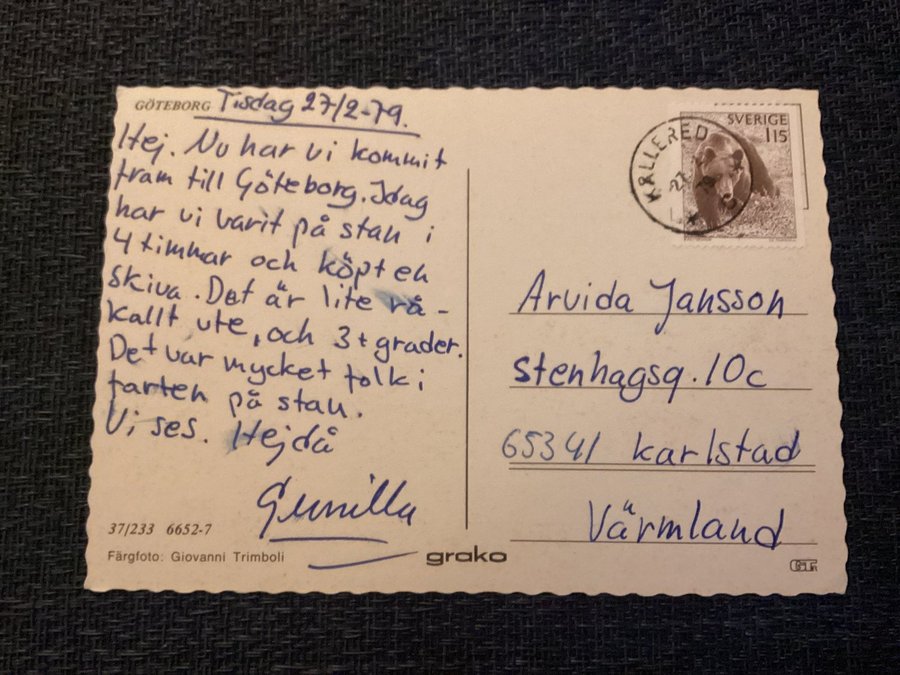 GÖTEBORG Tisdag 27/2-79.
Hej. Nu har vi kommit
fram till Göteborg. Idag
har vi varit på stan i
4 timmar och köpt en
skiva. Det är lite rå-
kallt ute, och 3+ grader.
Det var mycket folk i
farten på stan.
Vi ses. Hejdå
Gunilla
37/233 6652-7
Färgfoto: Giovanni Trimboli
grako
SVERIGE
115
KÅLLERED
Arvida Jansson
Stenhagsg. 10c
65341 Karlstad
Värmland